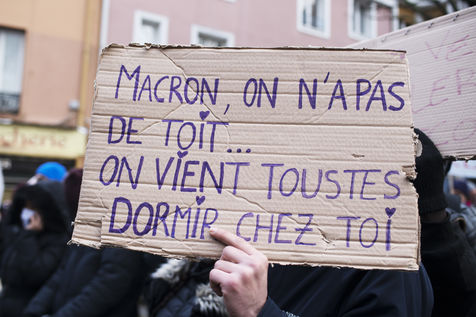 MACRON, ON N'A PAS
DE TOIT...
ON VIENT TOUSTES
DORMIR CHEZ TOI